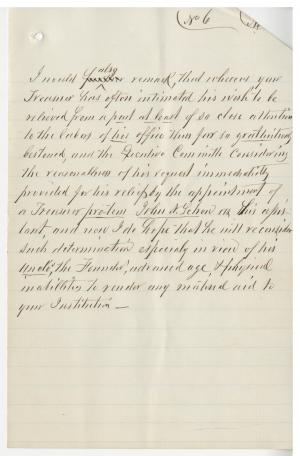 No 6
also
I would further remark, that whereas your
Treasurer has often intimated his wish to be
relieved from a part at least of so close attention
to the labors of his office thus far so gratuitously
bestowed, and the Executive Committe Considering
the reasonableness of his request immediatly
provided for his relief by the appointment of
a Treasurer protem John A. as his assis-
tant, and now I do hope that he will reconsider
such determination specialy in view of his
Uncle, the Founder, advanced age, & physical
inabilities to render any material aid to
your Institution —